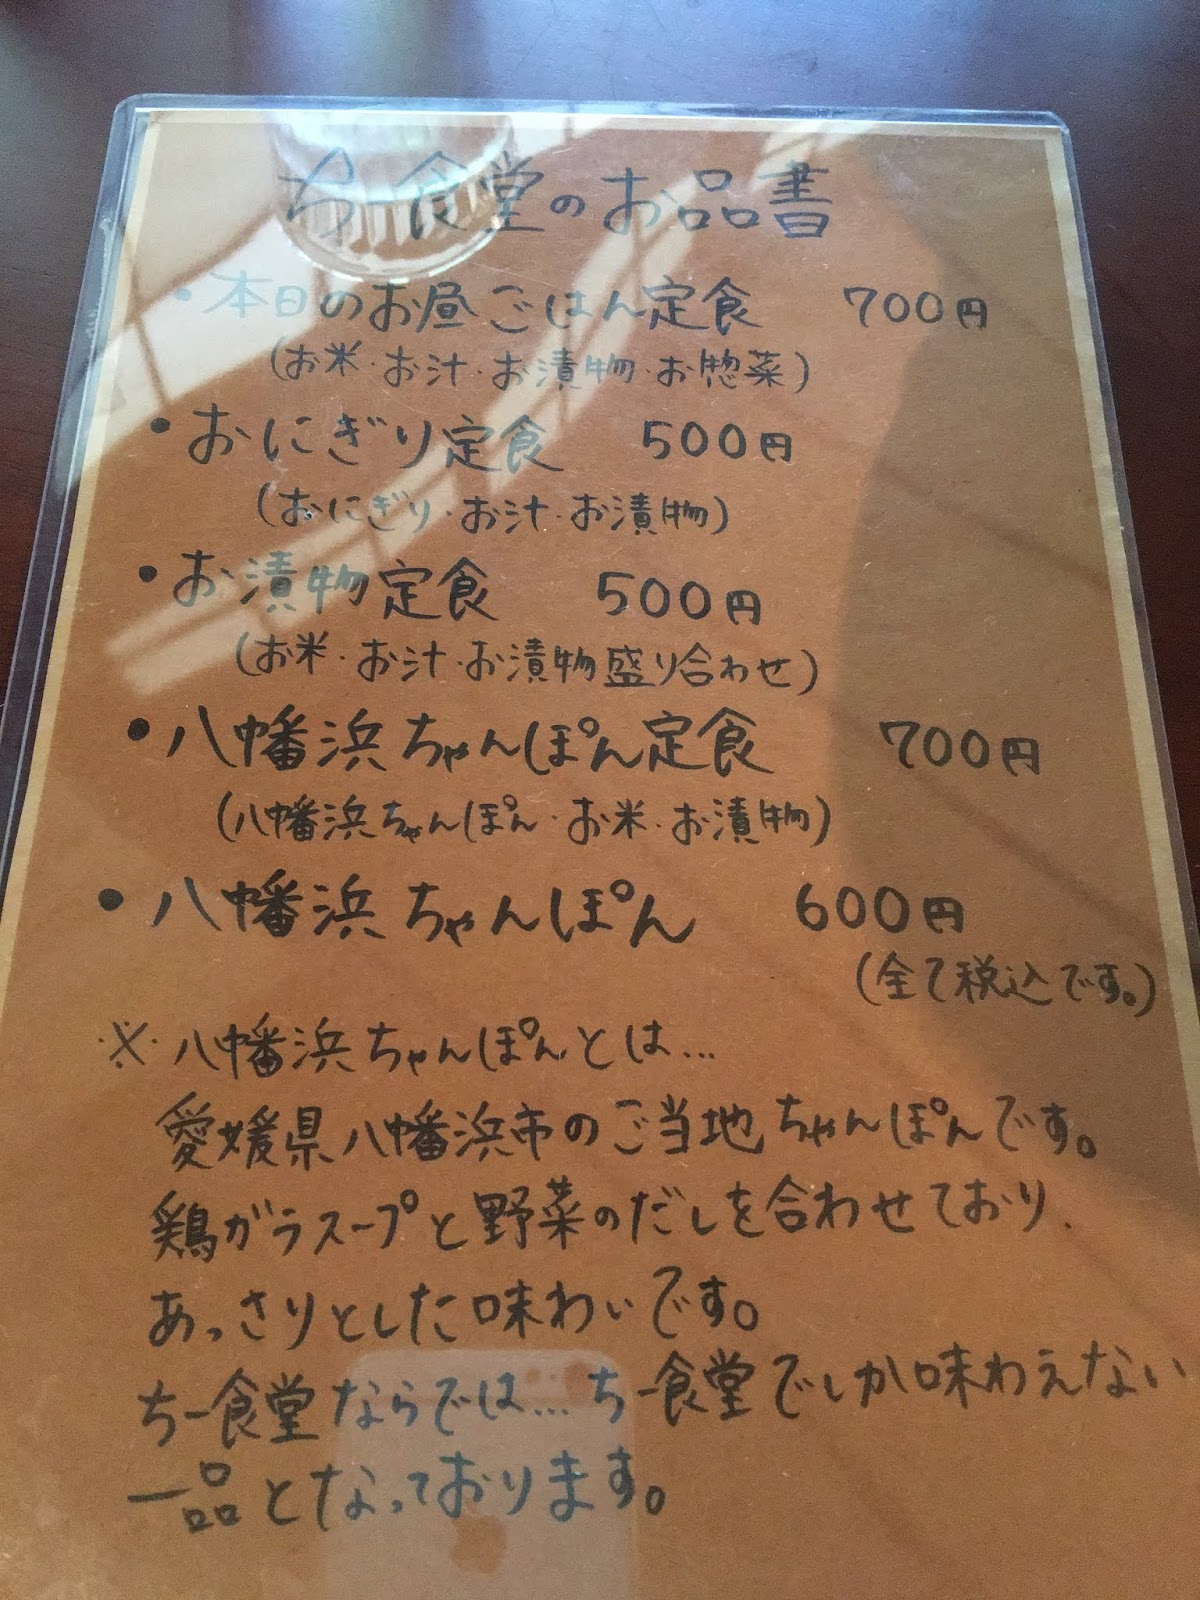 ちー食堂のお品書
・本日のお昼ごはん定食 700円
(お米・お汁・お漬物・お惣菜)
・おにぎり定食 500円
(おにぎり・お汁・お漬物)
・お漬物定食 500円
(お米・お汁・お漬物盛り合わせ)
・八幡浜ちゃんぽん定食 700円
(八幡浜ちゃんぽん・お米・お漬物)
・八幡浜ちゃんぽん 600円
(全て税込です。)
※八幡浜ちゃんぽんとは…
愛媛県八幡浜市のご当地ちゃんぽんです。
鶏ガラスープと野菜のだしを合わせており、
あっさりとした味わいです。
ちー食堂ならでは…ちー食堂でしか味わえない
一品となっております。